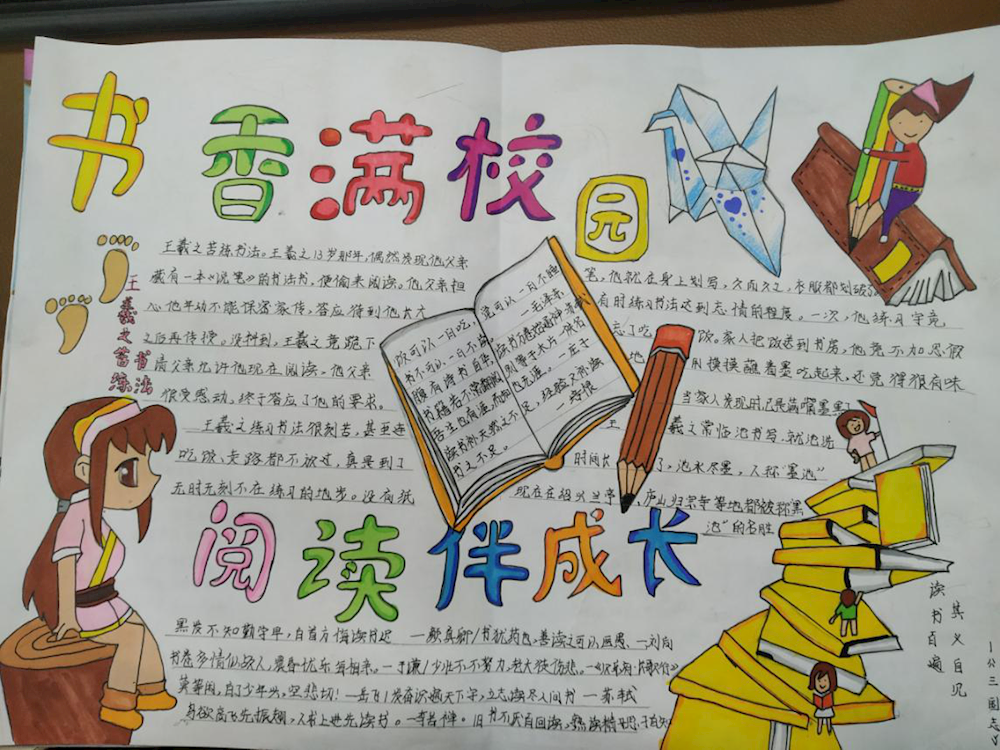 书香满校园
王羲之苦练书法
王羲之苦练书法。王羲之13岁那年,偶然发现他父亲
藏有一本《说笔》的书法书,便偷来阅读。他父亲担
心他年幼不能保密家传,答应待到他长大
之后再传授。没料到,王羲之竟跪下
请父亲允许他现在阅读。他父亲
很受感动,终于答应了他的要求。
王羲之练习书法很刻苦,甚至连
吃饭、走路都不放过,真是到了
无时无刻不在练习的地步。没有纸
饭可以一日不吃,
觉可以一日不睡
书不可以一日不读
—毛泽东
笔,他就在身上划写,久而久之,衣服都划破了
有时练习书法达到忘情的程度。一次,他练习字竟
忘了吃饭。家人把饭送到书房,他竟不加思假
用馍馍蘸着墨吃起来,还觉得很有味
当家人发现时,已是满嘴墨黑了
王羲之常临池书写,就池洗
时间长了,池水尽墨,人称“墨池”
现在在绍兴兰亭、庐山归宗寺等地都被称墨
池”的名胜
阅读伴成长
黑发不知勤学早,白首方悔读书迟 —颜真卿/书犹药也,善读之可以医愚 —刘向
书卷多情似故人,晨昏忧乐每相亲。—于谦/少壮不努力,老大徒伤悲。
莫等闲,白了少年头,空悲切!—岳飞/发奋识遍天下字,立志读尽人间书 —苏轼
鸟欲高飞先振翅,人求上进先读书。—李苦禅。旧书不厌百回读,熟读精思子自知
读书百遍
其义自见
—《三国志》